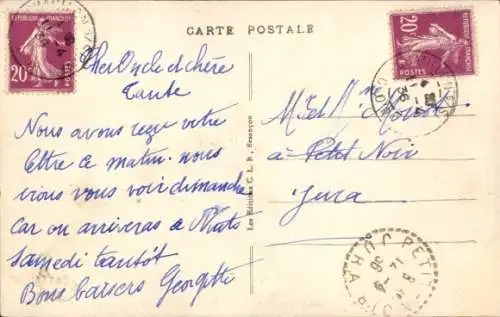 CARTE POSTALE
Cher Oncle et chère
Tante
Nous avons reçu votre
lettre ce matin. nous
irons vous voir dimanche
car on arrivera à
samedi tantôt
Bons baisers Georgette
Les Editions C. L. B., Besançon
M. et Mme
à Petit Noir
Jura
REPUBLIQUE FRANÇAISE
20c
POSTES
REPUBLIQUE FRANÇAISE
20c
POSTES
PETIT-NOIR
JURA